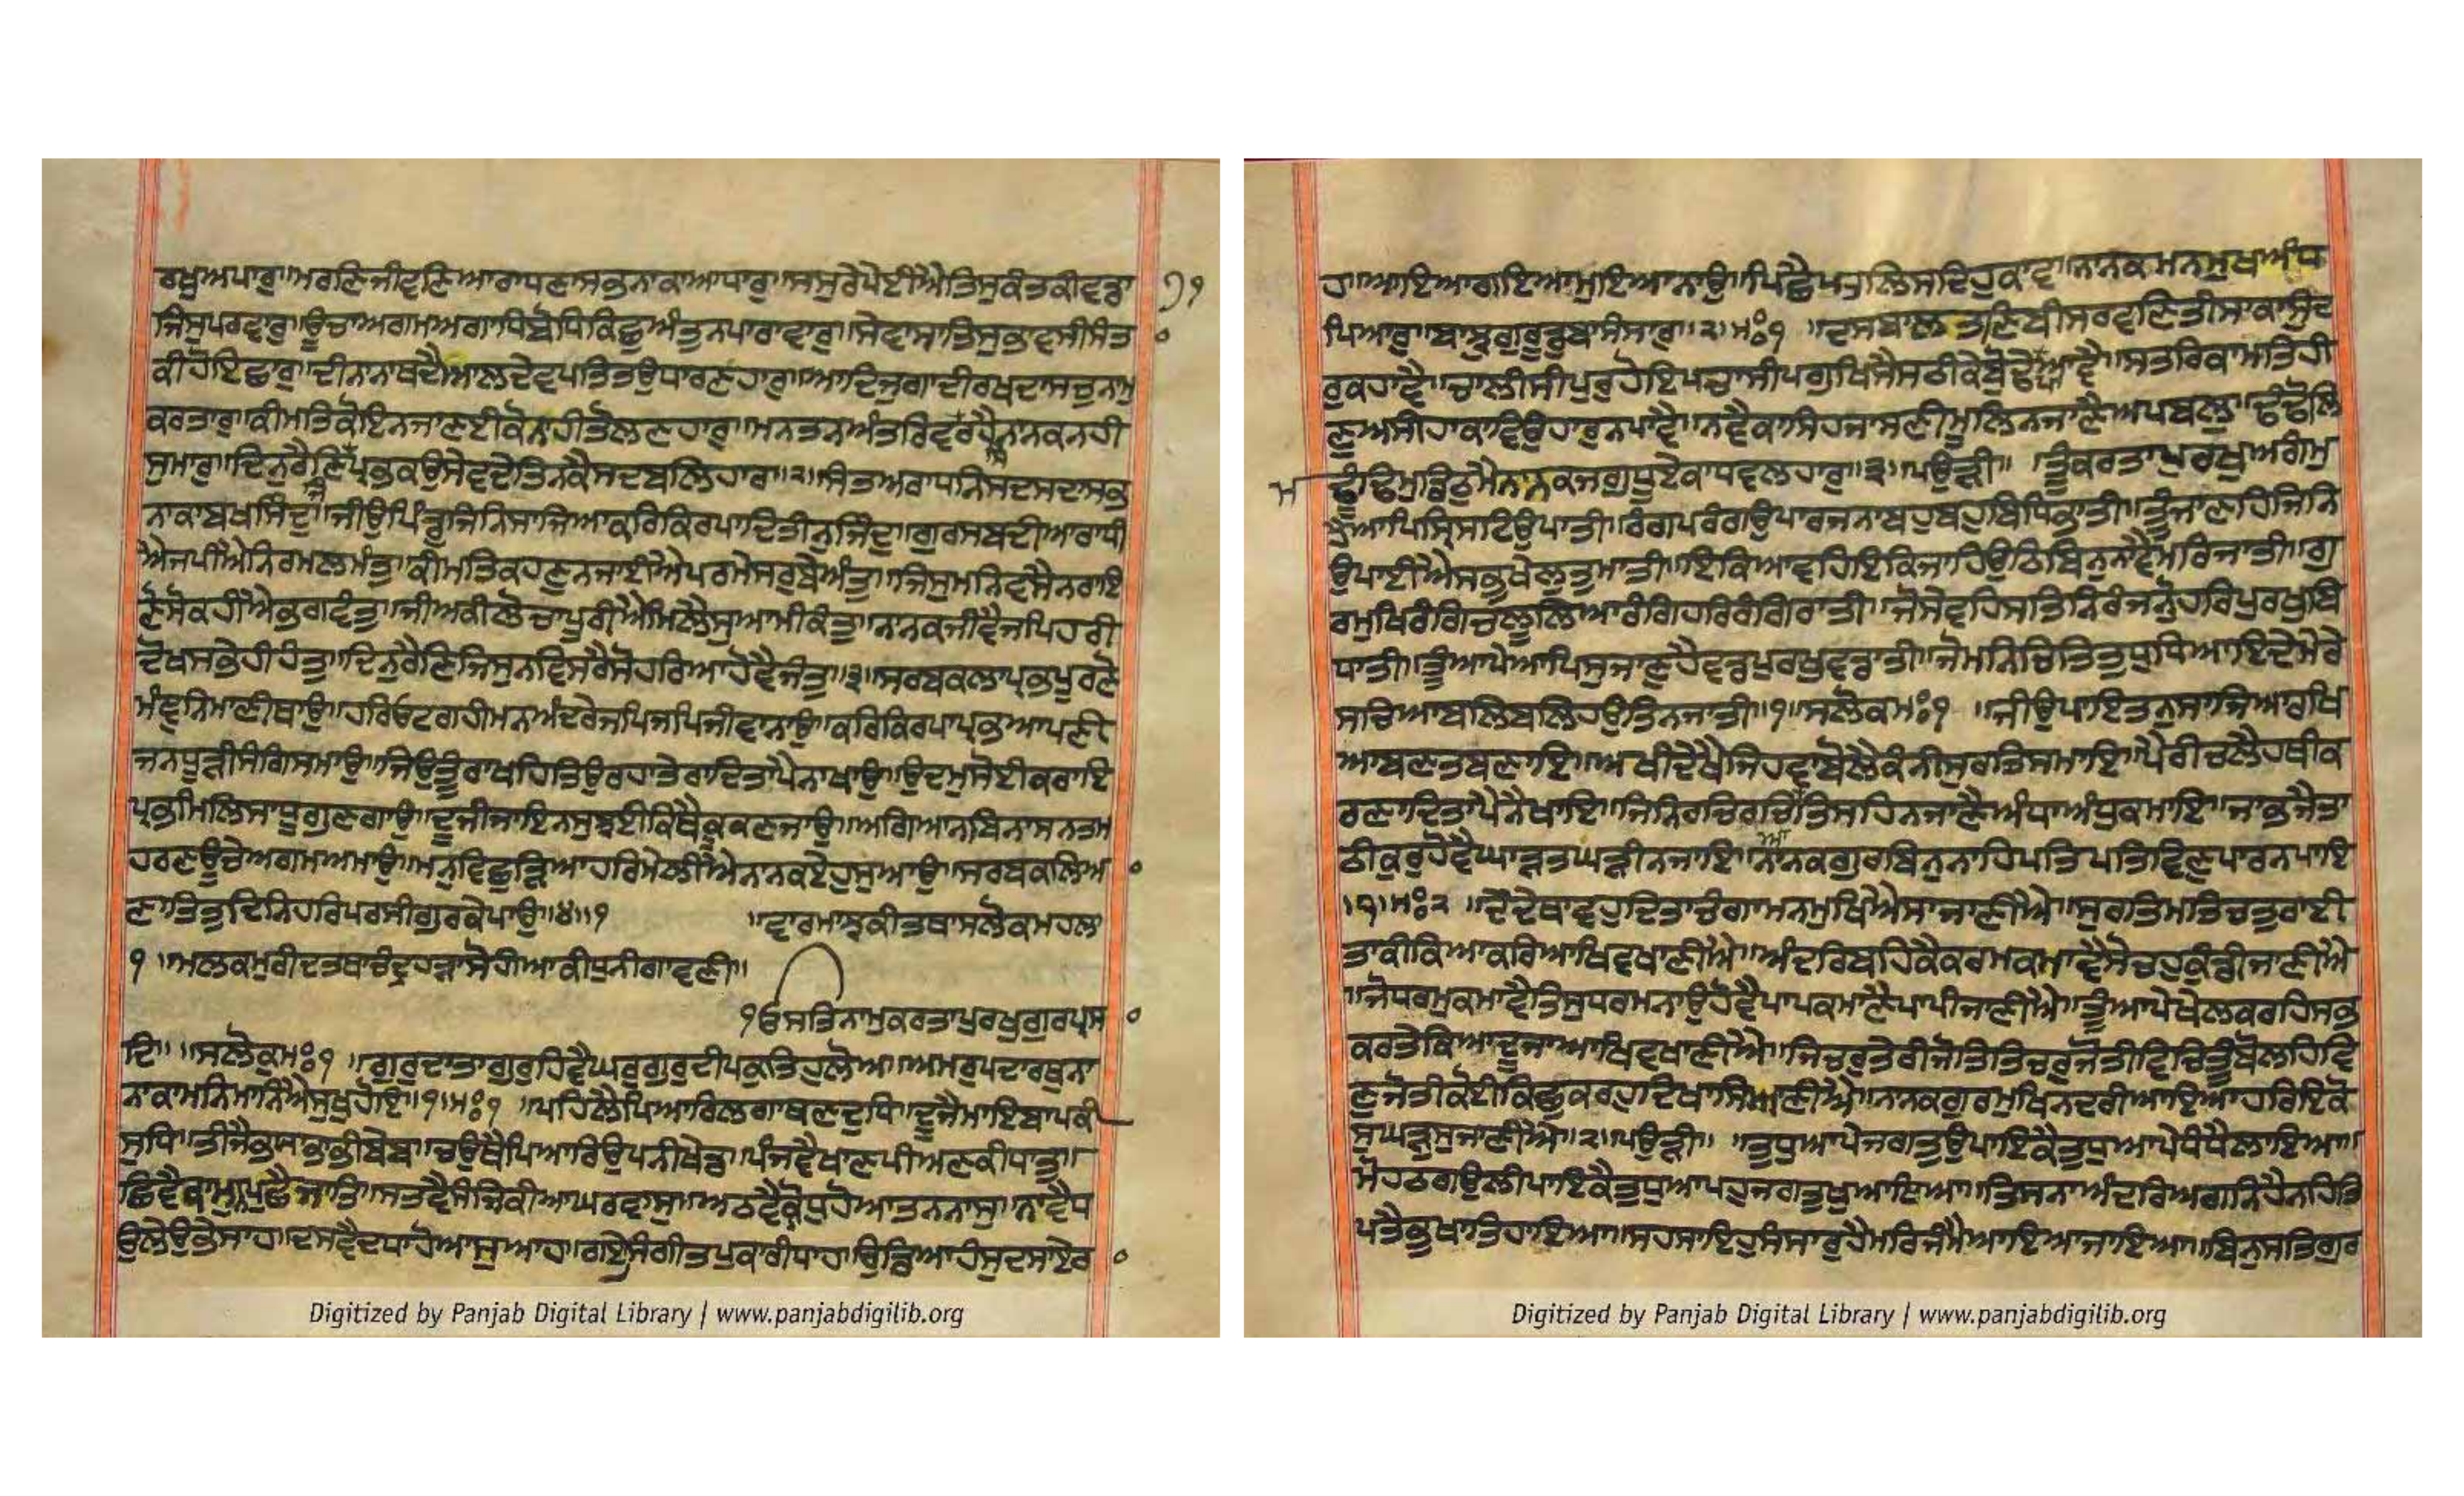 ਰਖੁਅਪਾਰੁ॥ਮਰਣਿਜੀਵਣਿਆਰਾਧਣਾਸਭਨਾਕਾਆਧਾਰੁ॥ਸਸੁਰੇਪੇਈਐਤਿਸੁਕੰਤਕੀਵਡਾ ੭੧
ਜਿਸੁਪਰਵਾਰੁ॥ਊਚਾਅਗਮਅਗਾਧਿਬੋਧਿਕਿਛੁਅੰਤੁਨਪਾਰਾਵਾਰੁ॥ਸੇਵਾਸਾਤਿਸੁਭਾਵਸੀਸੰਤ
ਕੀਹੋਇਛਾਰੁ॥ਦੀਨਾਨਾਥਦੈਆਲਦੇਵਪਤਿਤਉਧਾਰਣਹਾਰੁ॥ਆਦਿਜੁਗਾਦੀਰਖਦਾਸਚੁਨਾਮੁ
ਕਰਤਾਰੁ॥ਕੀਮਤਿਕੋਇਨਜਾਣਈਕੋਨਾਹੀਤੋਲਣਹਾਰੁ॥ਮਨਤਨਅੰਤਰਿਵਰਹੈਨਾਨਕਨਹੀ
ਸੁਮਾਰੁ॥ਦਿਨੁਰੈਣਿਪ੍ਰਭਕਉਸੇਵਦੇਤਿਨਕੈਸਦਬਲਿਹਾਰ॥੨॥ਸੰਤਅਰਾਧਨਿਸਦਸਦਾਸਭ
ਨਾਕਾਬਖਸਿੰਦੁ॥ਜੀਉਪਿੰਡੁਜਿਨਿਸਾਜਿਆਕਰਿਕਿਰਪਾਦਿਤੀਨੁਜਿੰਦੁ॥ਗੁਰਸਬਦੀਆਰਾਧੀ
ਐਜਪੀਐਨਿਰਮਲਮੰਤੁ॥ਕੀਮਤਿਕਹਣੁਨਜਾਈਐਪਰਮੇਸੁਰੁਬੇਅੰਤੁ॥ਜਿਸੁਮਨਿਵਸੈਨਰਾਇ
ਣੋਸੋਕਹੀਐਭਗਵੰਤੁ॥ਜੀਅਕੀਲੋਚਾਪੂਰੀਐਮਿਲੈਸੁਆਮੀਕੰਤੁ॥ਨਾਨਕਜੀਵੈਜਪਿਹਰੀ
ਦੋਖਸਭੇਹੀਹੰਤੁ॥ਦਿਨੁਰੈਣਿਜਿਸੁਨਵਿਸਰੈਸੋਹਰਿਆਹੋਵੈਜੰਤੁ॥੩॥ਸਰਬਕਲਾਪ੍ਰਭਪੂਰਣੋ
ਮੰਞੁਨਿਮਾਣੀਥਾਉ॥ਹਰਿਓਟਗਹੀਮਨਅੰਦਰੇਜਪਿਜਪਿਜੀਵਾਨਾਉ॥ਕਰਿਕਿਰਪਾਪ੍ਰਭਆਪਣੀ
ਜਨਧੂੜੀਸੰਗਿਸਮਾਉ॥ਜਿਉਤੂੰਰਾਖਹਿਤਿਉਰਹਾਤੇਰਾਦਿਤਾਪੈਨਾਖਾਉ॥ਉਦਮੁਸੋਈਕਰਾਇ
ਪ੍ਰਭਮਿਲਿਸਾਧੂਗੁਣਗਾਉ॥ਦੂਜੀਜਾਇਨਸੁਝਈਕਿਥੈਕੂਕਣਜਾਉ॥ਅਗਿਆਨਬਿਨਾਸਨਤਮ
ਹਰਣਊਚੇਅਗਮਅਮਾਉ॥ਮਨੁਵਿਛੁੜਿਆਹਰਿਮੇਲੀਐਨਾਨਕਏਹੁਸੁਆਉ॥ਸਰਬਕਲਿਆ
ਣਾਤਿਤੁਦਿਨਿਹਰਿਪਰਸੀਗੁਰਕੇਪਾਉ॥੪॥੧ ॥ਵਾਰਮਾਝਕੀਤਥਾਸਲੋਕਮਹਲਾ
੧ ॥ਮਲਕਮੁਰੀਦਤਥਾਚੰਦ੍ਰਹੜਾਸੋਹੀਆਕੀਧੁਨੀਗਾਵਣੀ॥
ੴਸਤਿਨਾਮੁਕਰਤਾਪੁਰਖੁਗੁਰਪ੍ਰਸ
ਾਦਿ॥ ॥ਸਲੋਕੁਮਃ੧ ॥ਗੁਰੁਦਾਤਾਗੁਰੁਹਿਵੈਘਰੁਗੁਰੁਦੀਪਕੁਤਿਹੁਲੋਅ॥ਅਮਰੁਪਦਾਰਥੁਨਾ
ਨਕਾਮਨਿਮਾਨਿਐਸੁਖੁਹੋਇ॥੧॥ਮਃ੧ ॥ਪਹਿਲੈਪਿਆਰਿਲਗਾਥਣਦੁਧਿ॥ਦੂਜੈਮਾਇਬਾਪਕੀ
ਸੁਧਿ॥ਤੀਜੈਭਯਾਭਭੀਬੇਬ॥ਚਉਥੈਪਿਆਰਿਉਪੰਨੀਖੇਡ॥ਪੰਜਵੈਖਾਣਪੀਅਣਕੀਧਾਤੁ॥
ਛਿਵੈਕਾਮੁਨਪੁਛੈਜਾਤਿ॥ਸਤਵੈਸੰਜਿਕੀਆਘਰਵਾਸੁ॥ਅਠਵੈਕ੍ਰੋਧੁਹੋਆਤਨਨਾਸੁ॥ਨਾਵੈਧ
ਉਲੇਉਭੇਸਾਹ॥ਦਸਵੈਦਧਾਹੋਆਸੁਆਹ॥ਗਏਸਿਗੀਤਪੁਕਾਰੀਧਾਹ॥ਉਡਿਆਹੰਸੁਦਸਾਏਰ
ਾਹ॥ਆਇਆਗਇਆਮੁਇਆਨਾਉ॥ਪਿਛੈਪਤਲਿਸਦਿਹੁਕਾਵ॥ਨਾਨਕਮਨਮੁਖਿਅੰਧ
ਪਿਆਰੁ॥ਬਾਝੁਗੁਰੂਡੁਬਾਸੰਸਾਰੁ॥੨॥ਮਃ੧ ॥ਦਸਬਾਲਤਣਿਬੀਸਰਵਣਿਤੀਸਾਕਾਸੁੰਦ
ਰੁਕਹਾਵੈ॥ਚਾਲੀਸੀਪੁਰੁਹੋਇਪਚਾਸੀਪਗੁਖਿਸੈਸਠੀਕੇਬੋਢੇਪਾਆਵੈ॥ਸਤਰਿਕਾਮਤਿਹੀ
ਣੁਅਸੀਹਾਕਾਵਿਉਹਾਰੁਨਪਾਵੈ॥ਨਵੈਕਾਸਿਹਜਾਸਣੀਮੂਲਿਨਜਾਣੈਅਪਬਲੁ॥ਢੰਢੋਲਿ
ਮੁ ਢੂਢਿਮੁਡਿਠੁਮੈਨਾਨਕਜਗੁਧੂਏਕਾਧਵਲਹਾਰੁ॥੩॥ਪਉੜੀ॥ ਤੂੰਕਰਤਾਪੁਰਖੁਅਗੰਮੁ
ਹੈਆਪਿਸ੍ਰਿਸਟਿਉਪਾਤੀ॥ਰੰਗਪਰੰਗਉਪਾਰਜਨਾਬਹੁਬਹੁਬਿਧਿਭਾਤੀ॥ਤੂੰਜਾਣਹਿਜਿਨਿ
ਉਪਾਈਐਸਭੁਖੇਲੁਤੁਮਾਤੀ॥ਇਕਿਆਵਹਿਇਕਿਜਾਹਿਉਠਿਬਿਨੁਨਾਵੈਮਰਿਜਾਤੀ॥ਗੁ
ਰਮੁਖਿਰੰਗਿਚਲੂਲਿਆਰੰਗਿਹਰਿਰੰਗਿਰਾਤੀ॥ਸੋਸੇਵਹਿਸਤਿਨਿਰੰਜਨੋਹਰਿਪੁਰਖੁਬਿ
ਧਾਤੀ॥ਤੂੰਆਪੇਆਪਿਸੁਜਾਣੁਹੈਵਡਪੁਰਖੁਵਡਾਤੀ॥ਜੋਮਨਿਚਿਤਿਤੁਧੁਧਿਆਇਦੇਮੇਰੇ
ਸਚਿਆਬਲਿਬਲਿਹਉਤਿਨਜਾਤੀ॥੧॥ਸਲੋਕਮਃ੧ ॥ਜੀਉਪਾਇਤਨੁਸਾਜਿਆਰਖਿ
ਆਬਣਤਬਣਾਇ॥ਅਖੀਦੇਖੈਜਿਹਵਾਬੋਲੈਕੰਨੀਸੁਰਤਿਸਮਾਇ॥ਪੈਰੀਚਲੈਹਥੀਕ
ਰਣਾਦਿਤਾਪੈਨੈਖਾਇ॥ਜਿਨਿਰਚਿਰਚਿਆਤਿਸਹਿਨਜਾਣੈਅੰਧਾਅੰਧੁਕਮਾਇ॥ਜਾਭਜੈਤਾ
ਠੀਕਰੁਹੋਵੈਘਾੜਤਘੜੀਨਜਾਇ॥ਨਾਨਕਗੁਰਬਿਨੁਨਾਹਿਪਤਿਪਤਿਵਿਣੁਪਾਰਨਪਾਇ
॥੧॥ਮਃ੨ ॥ਦੇਂਦੇਥਾਵਹੁਦਿਤਾਚੰਗਾਮਨਮੁਖਿਐਸਾਜਾਣੀਐ॥ਸੁਰਤਿਮਤਿਚਤੁਰਾਈ
ਤਾਕੀਕਿਆਕਰਿਆਖਿਵਖਾਣੀਐ॥ਅੰਤਰਿਬਹਿਕੈਕਰਮਕਮਾਵੈਸੋਚਹੁਕੁੰਡੀਜਾਣੀਐ
॥ਜੋਧਰਮੁਕਮਾਵੈਤਿਸੁਧਰਮਨਾਉਹੋਵੈਪਾਪਕਮਾਣੈਪਾਪੀਜਾਣੀਐ॥ਤੂੰਆਪੇਖੇਲਕਰਹਿਸਭਿ
ਕਰਤੇਕਿਆਦੂਜਾਆਖਿਵਖਾਣੀਐ॥ਜਿਚਰੁਤੇਰੀਜੋਤਿਤਿਚਰੁਜੋਤੀਵਿਚਿਤੂੰਬੋਲਹਿਵਿ
ਣੁਜੋਤੀਕੋਈਕਿਛੁਕਰਹੁਦਿਖਾਸਿਆਣੀਐ॥ਨਾਨਕਗੁਰਮੁਖਿਨਦਰੀਆਇਆਹਰਿਇਕੋ
ਸੁਘੜੁਸੁਜਾਣੀਐ॥੨॥ਪਉੜੀ॥ ॥ਤੁਧੁਆਪੇਜਗਤੁਉਪਾਇਕੈਤੁਧੁਆਪੇਧੰਧੈਲਾਇਆ॥
ਮੋਹਠਗਉਲੀਪਾਇਕੈਤੁਧੁਆਪਹੁਜਗਤੁਖੁਆਇਆ॥ਤਿਸਨਾਅੰਦਰਿਅਗਨਿਹੈਨਹਤਿ
ਪਤੈਭੁਖਾਤਿਹਾਇਆ॥ਸਹਸਾਇਹੁਸੰਸਾਰੁਹੈਮਰਿਜੰਮੈਆਇਆਜਾਇਆ॥ਬਿਨੁਸਤਿਗੁਰ
Digitized by Panjab Digital Library | www.panjabdigilib.org
Digitized by Panjab Digital Library | www.panjabdigilib.org